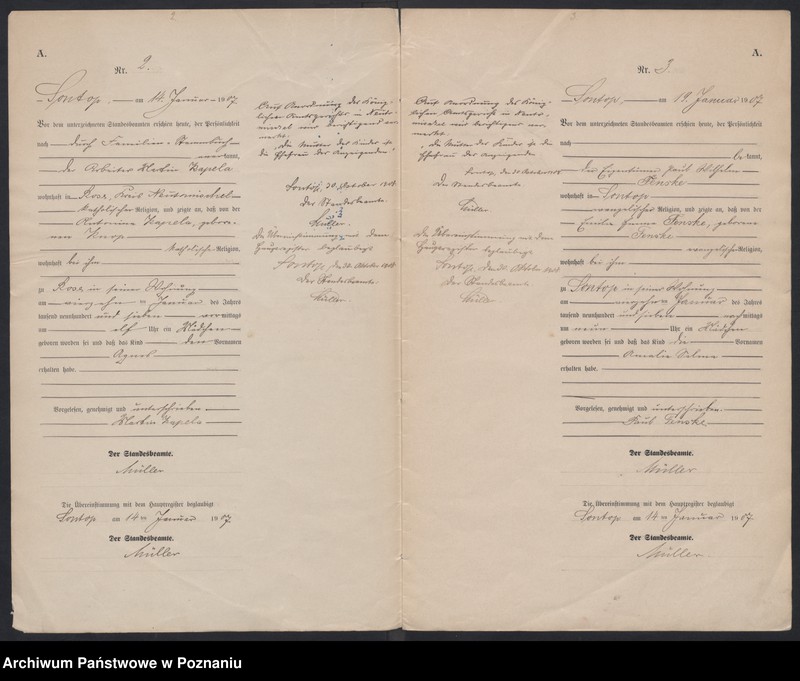 A.
Nr. 2.
Sontop, am 14. Januar 1907.
Vor dem unterzeichneten Standesbeamten erschien heute, der Persönlichkeit
nach durch Familien-Stammbuch
erkannt,
der Arbeiter Martin Kapela
wohnhaft in Rose, Kreis Neutomischel
katholischer Religion, und zeigte an, daß von der
Antonina Kapela, gebore-
nen Knop
katholischer Religion,
wohnhaft bei ihm
zu Rose in seiner Wohnung
am Januar des Jahres
tausend neunhundert und sieben vormittags
um elf Uhr ein Mädchen
geboren worden sei und daß das Kind den Vornamen
Agnes
erhalten habe.
Vorgelesen, genehmigt und unterschrieben
Martin Kapela
Der Standesbeamte.
Müller
Die Übereinstimmung mit dem Hauptregister beglaubigt
Sontop am 14. Januar 1907.
Der Standesbeamte.
Müller
Auf Anordnung des König-
lichen Amtsgerichts in Neuto-
mischel
die Mutter des Kindes ist
die Ehefrau des Anzeigenden
Sontop, 20. Oktober 1908
Der Standesbeamte.
Müller.
Die Übereinstimmung mit dem
Hauptregister beglaubigt
Sontop, den 20. Oktober 1908
Der Standesbeamte.
Müller.
A.
Nr. 3.
Sontop, am 19. Januar 1907.
Vor dem unterzeichneten Standesbeamten erschien heute, der Persönlichkeit
nach
bekannt,
der Eigentümer Paul Wilhelm
Fenske
wohnhaft in Sontop
evangelischer Religion, und zeigte an, daß von der
Emilie Fenske, geborene
Fenske
evangelischer Religion,
wohnhaft bei ihm
zu Sontop in seiner Wohnung
am Januar des Jahres
tausend neunhundert und sieben nachmittags
um neun Uhr ein Mädchen
geboren worden sei und daß das Kind die Vornamen
Amalie Selma
erhalten habe.
Vorgelesen, genehmigt und unterschrieben.
Paul Fenske
Der Standesbeamte.
Müller
Die Übereinstimmung mit dem Hauptregister beglaubigt
Sontop am 14. Januar 1907.
Der Standesbeamte.
Müller.
Auf Anordnung des König-
lichen Amtsgerichts in Neuto-
mischel
die Mutter des Kindes ist die
Ehefrau des Anzeigenden
Sontop, den 20. Oktober 1908
Der Standesbeamte.
Müller
Die Übereinstimmung mit dem
Hauptregister beglaubigt
Sontop, den 20. Oktober 1908
Der Standesbeamte.
Müller.
Archiwum Państwowe w Poznaniu